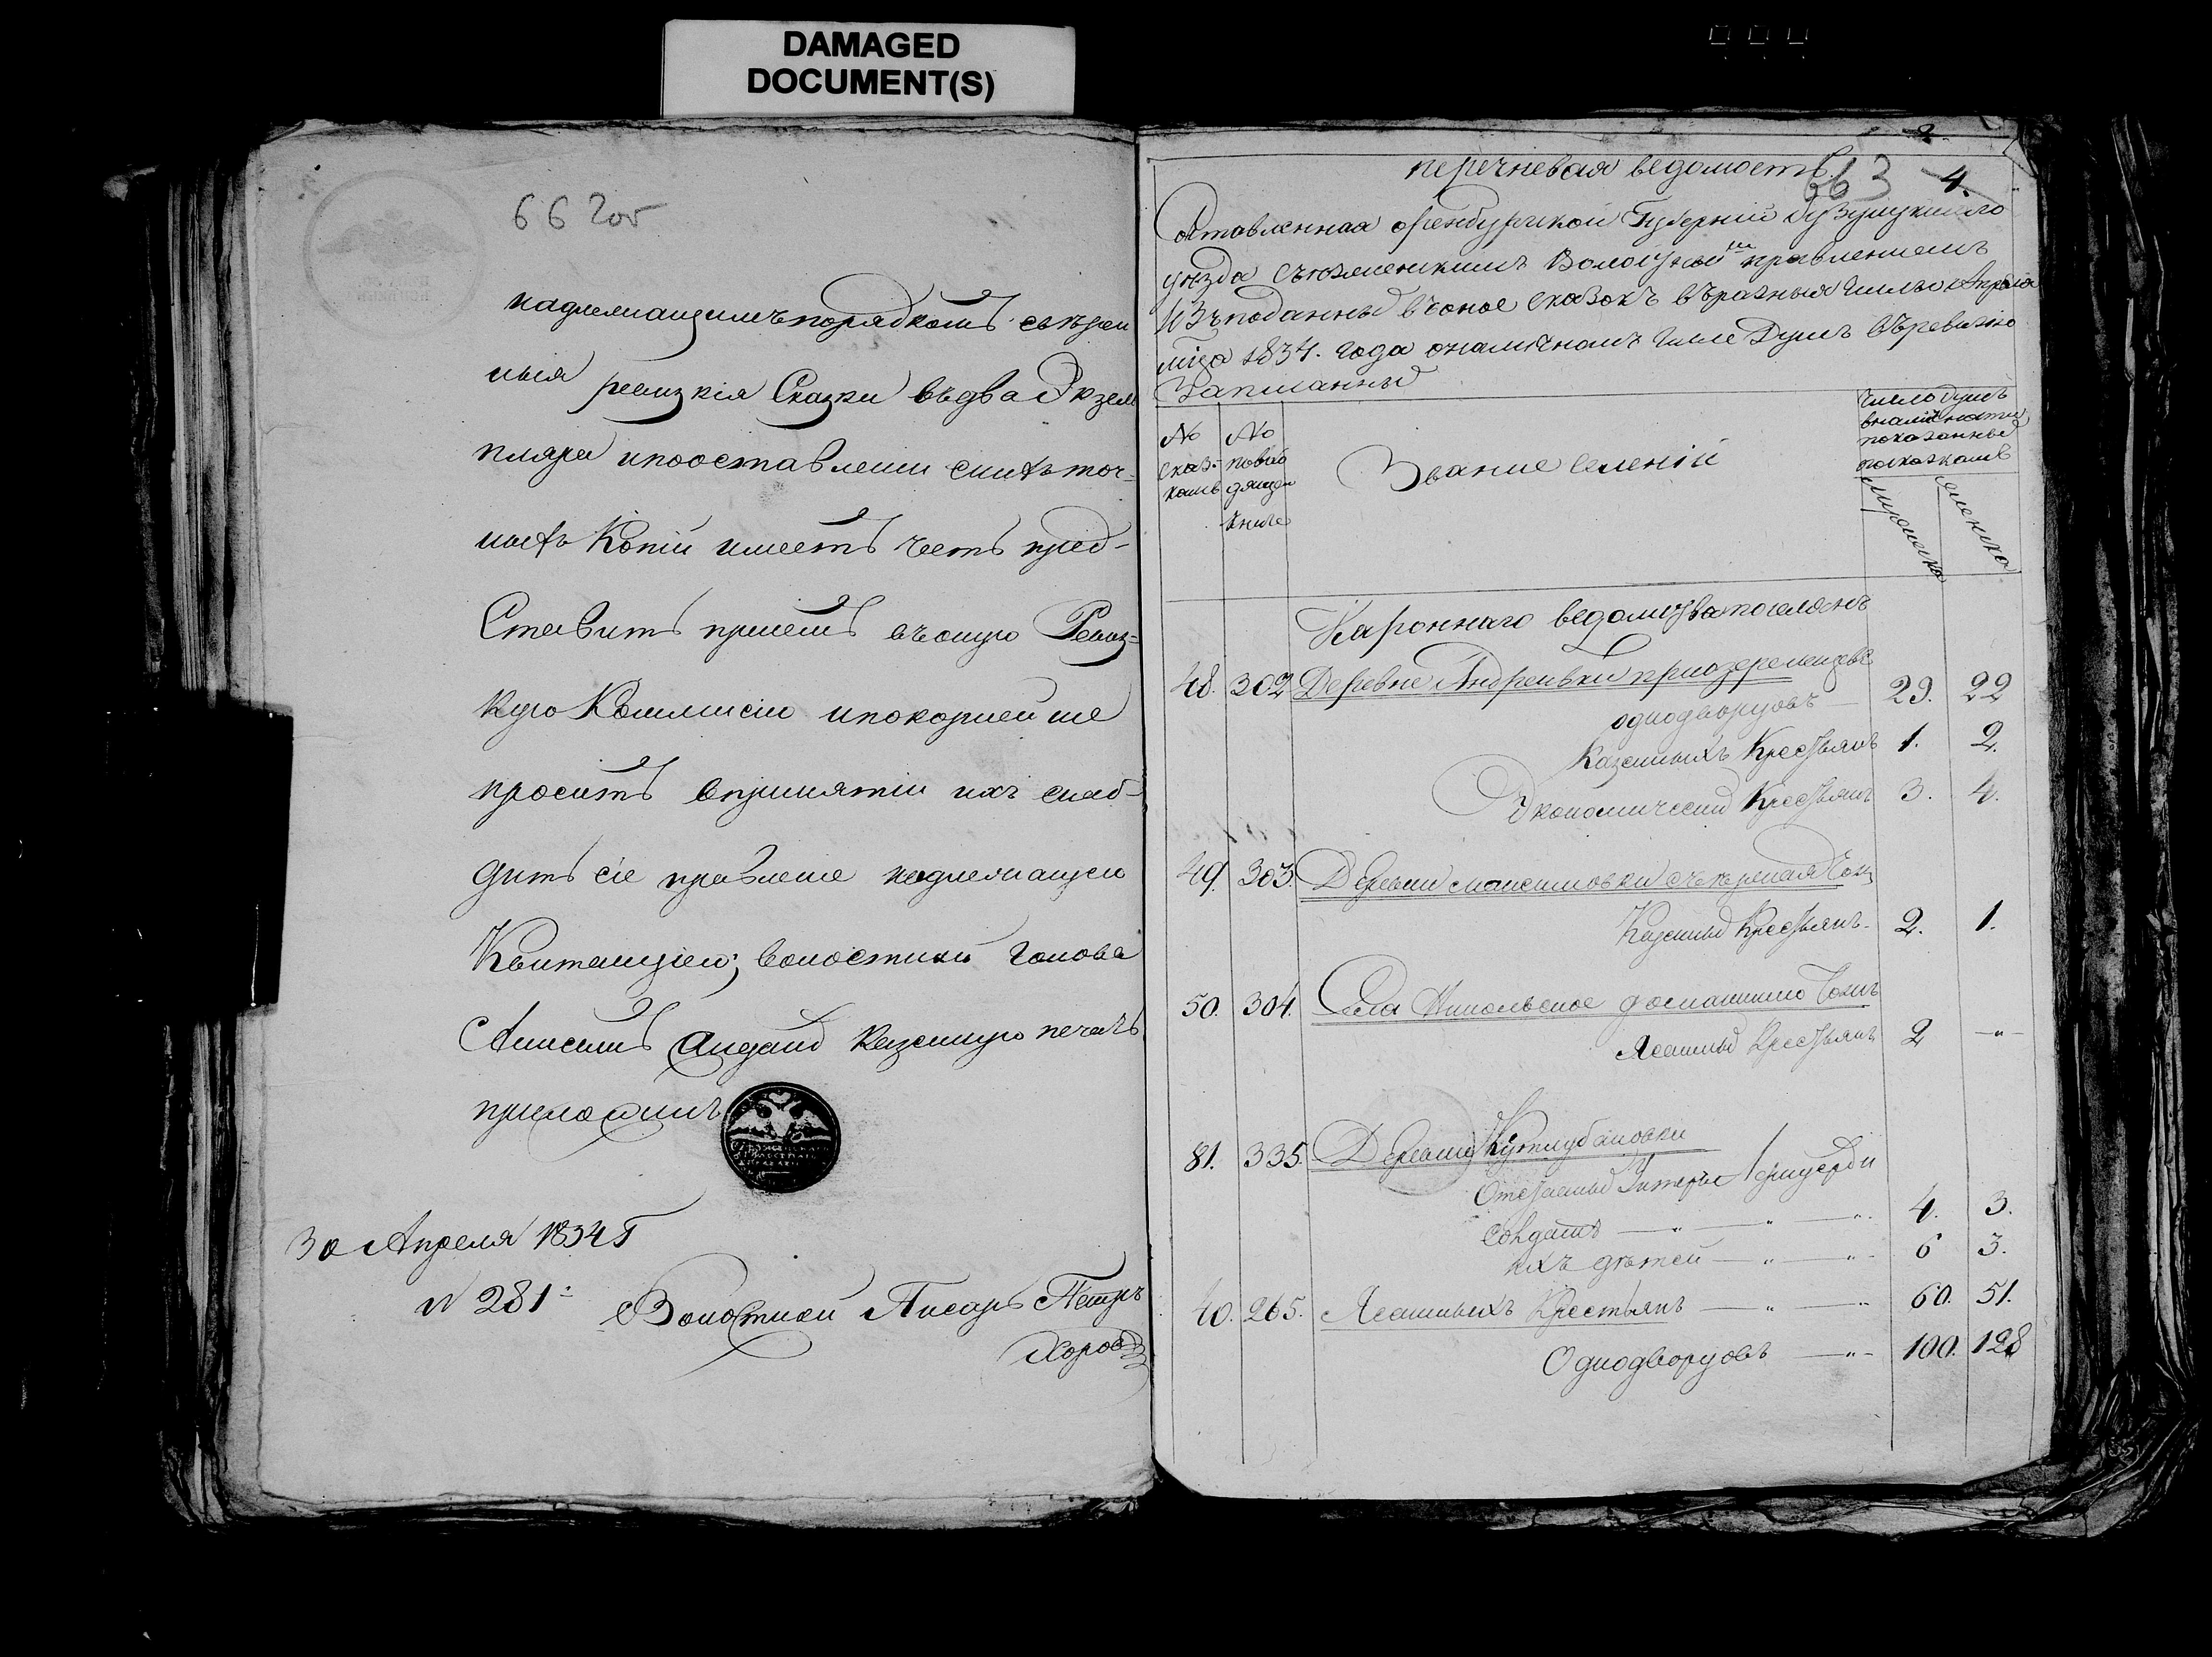 DAMAGED
DOCUMENT(S)
662об
надлежащимъ порядкомъ
ныя ревизкія Сказки въ два Экзем
пляра и по оставлении сихъ точ-
ныхъ Копіи имеетъ честь пред-
Ставить при семъ въ оную Ревиз-
кую Коммисію и покорнейше
проситъ в принятіи ихъ снаб-
дить сіе правленіе надлежащею
Квитанціею; волостный голова
Анисимъ казенную печать
приложилъ
30 Апреля 1834 Г
N 281
Волостной Писарь Петръ
2.
перечневая ведомость
663 4.
Составленная Оренбургской Губерніи Бузулуцкаго
уезда Съезженскимъ Волостнымъ правлениемъ
изъ поданных въ оное сказокъ въ разныя числы Апреля
мца 1834. года о наличномъ числе душъ въ ревизию
Записанных
№ сказ-камъ
№ по входящей книге
Звание селеній
число душъ
в наличности
показанных
по сказкамъ
мужеска
женска
Кароннаго ведомства поселянъ
48. 302 Деревне Андреивки при озере
однодворцовъ — 29. 22
Казенныхъ Крестьянъ 1. 2.
Экономических Крестьянъ 3. 4.
49. 303. Деревни Максимовки
Казенных Крестьянъ. 2. 1.
50. 304. Села Никольское
Ясашных Крестьянъ 2 -"-
81. 335. Деревни Кутлубановки
Отставных
Солдатъ — " — " — " 4. 3.
ихъ детей — " — " - 6 3.
40. 265. Ясашныхъ Крестьянъ — " — " 60. 51.
Однодворцовъ — " - 100. 128